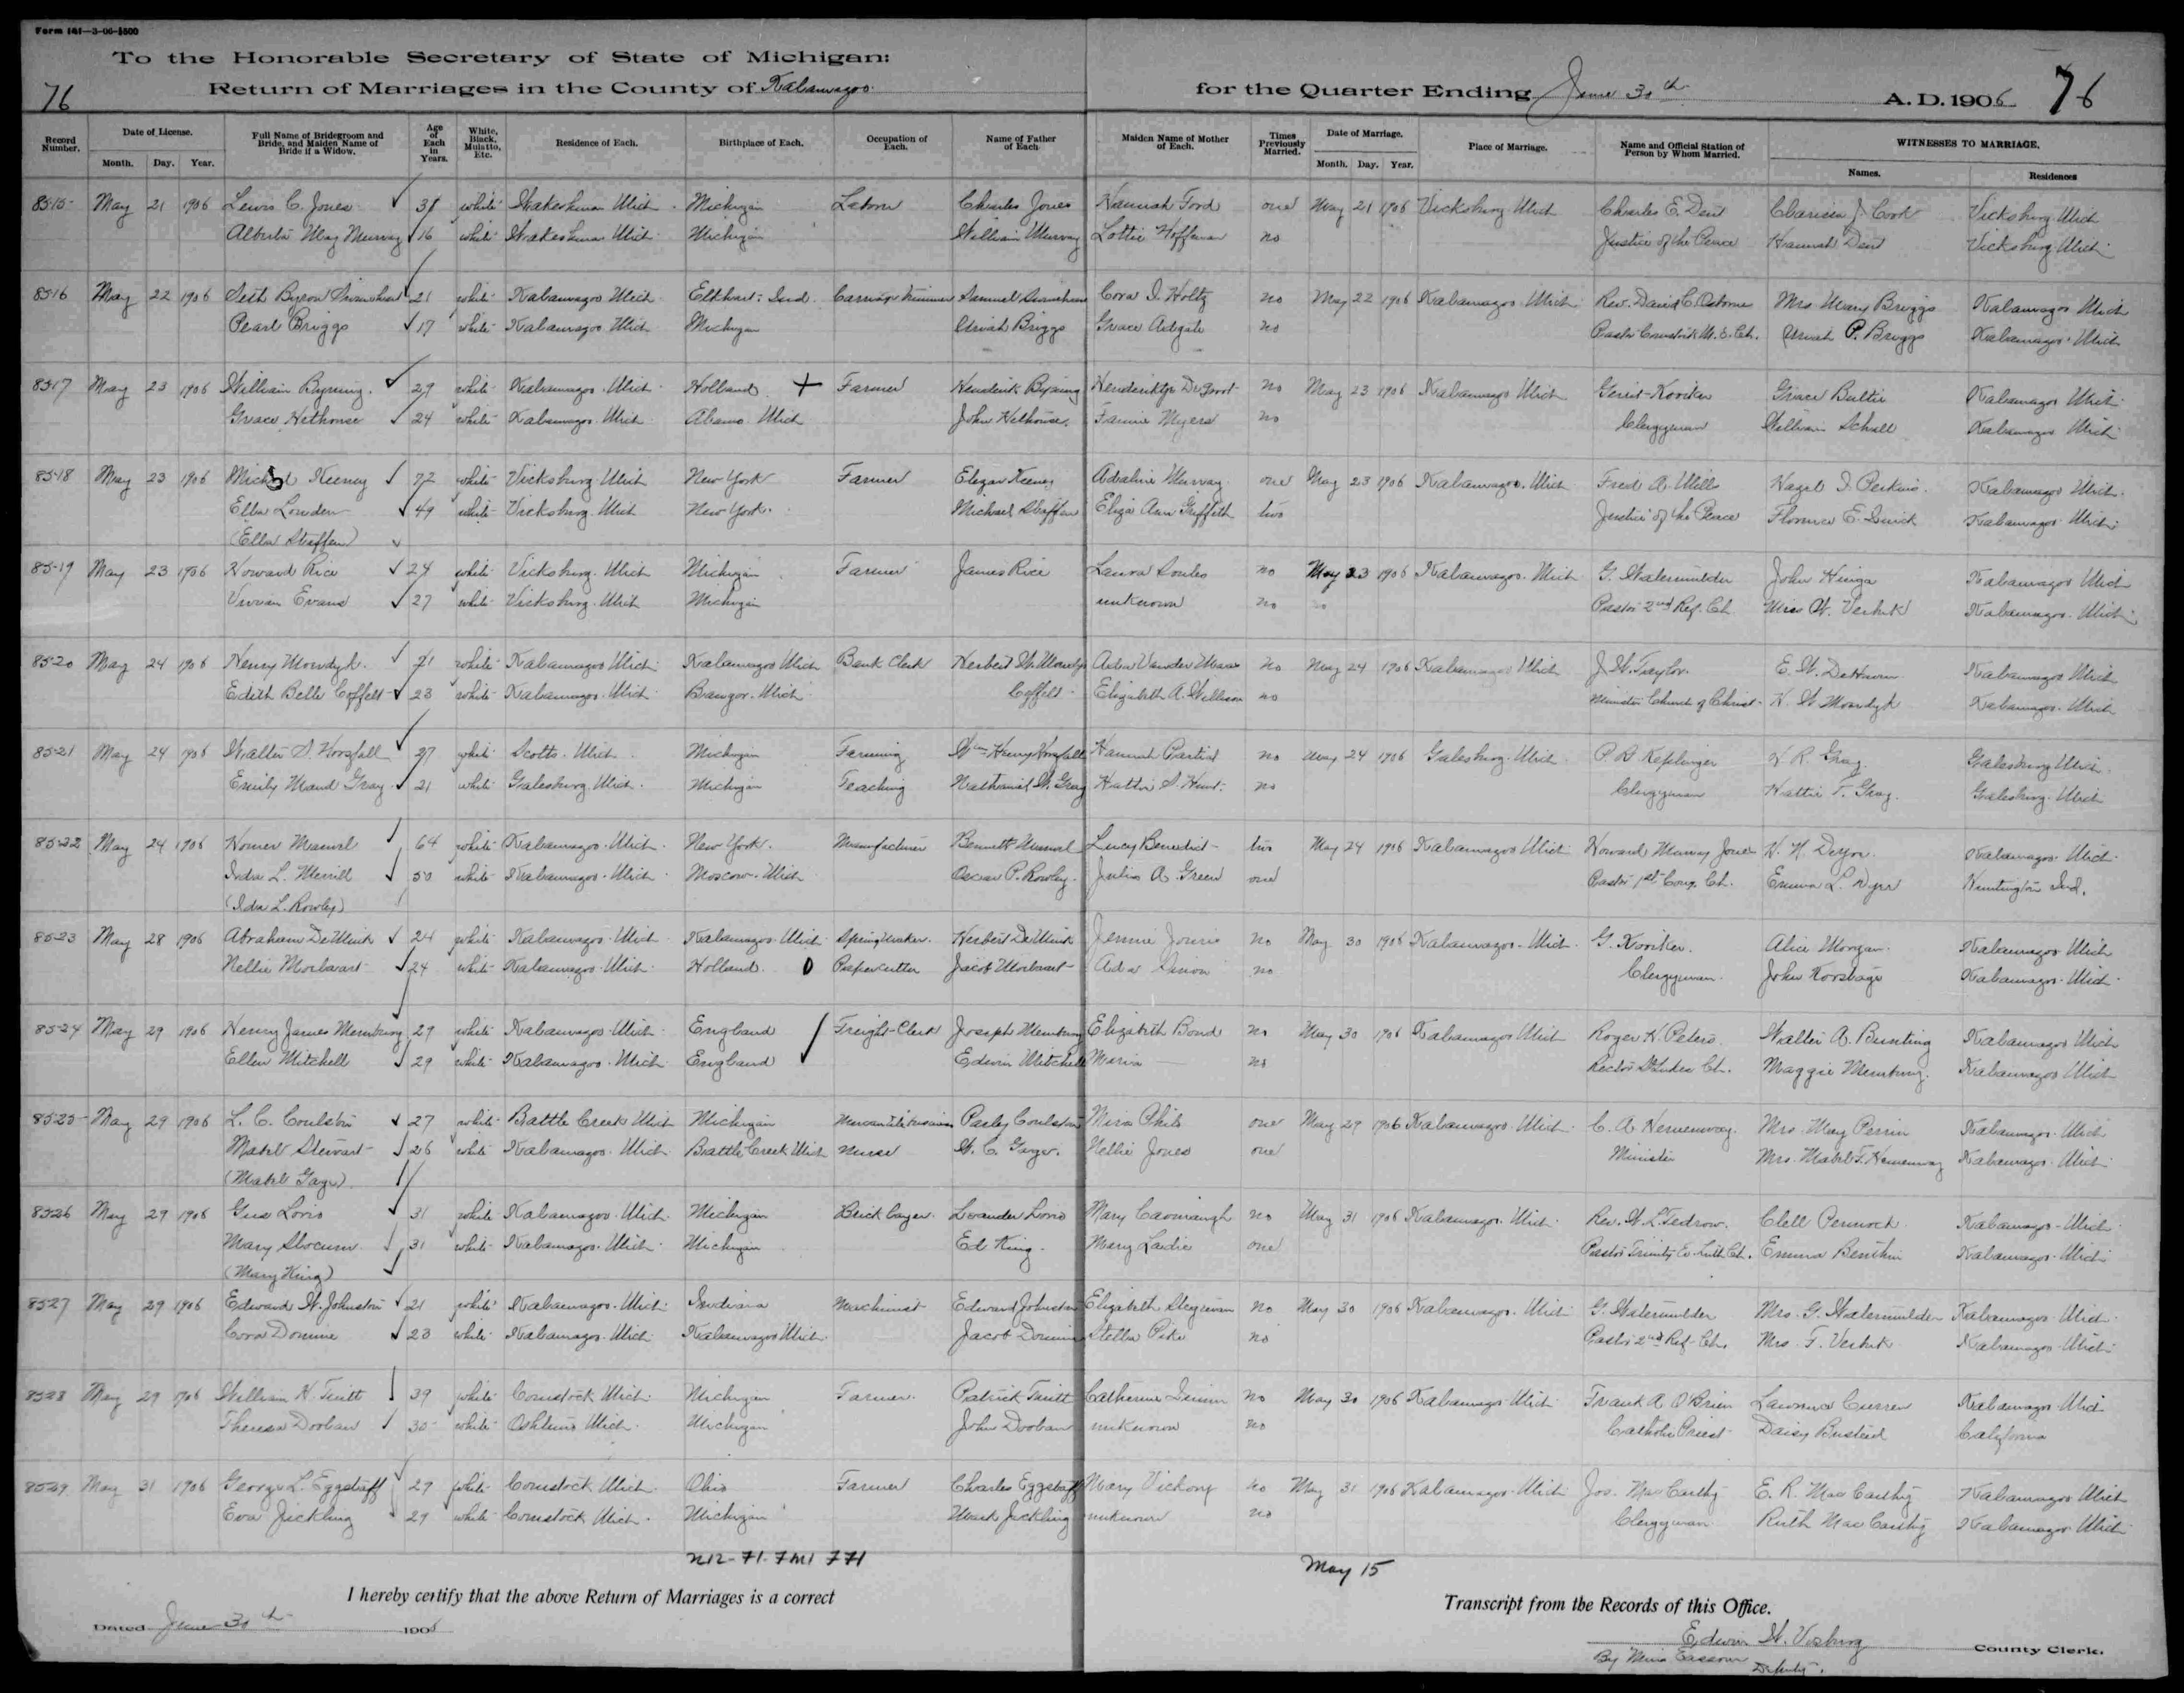 Form 141—3-06-1500
To the Honorable Secretary of State of Michigan:
76 Return of Marriages in the County of Kalamazoo for the Quarter Ending June 30th A. D. 1906 76
Record Number. Date of License. Month. Day. Year. Full Name of Bridegroom and Bride, and Maiden Name of Bride if a Widow. Age of Each in Years. White, Black, Mulatto, Etc. Residence of Each. Birthplace of Each. Occupation of Each. Name of Father of Each Maiden Name of Mother of Each. Times Previously Married. Date of Marriage. Month. Day. Year. Place of Marriage. Name and Official Station of Person by Whom Married. WITNESSES TO MARRIAGE. Names. Residences
8515 May 21 1906 Lewis C. Jones white Wakeshma Mich Michigan Labor Charles Jones Hannah Ford one May 21 1906 Vicksburg Mich Charles E. Dent Clarissa J. Cook Vicksburg Mich
Alberta May Murray 16 white Wakeshma Mich Michigan William Murray Lottie Hoffman no Justice of the Peace Hannah Dent Vicksburg Mich
8516 May 22 1906 Seth Byron 21 white Kalamazoo Mich Elkhart. Ind. Carriage Trimmer Samuel Cora I. Holtz no May 22 1906 Kalamazoo Mich Rev. David C. Osborne Mrs Mary Briggs Kalamazoo Mich
Pearl Briggs 17 white Kalamazoo Mich Michigan Uriah Briggs Grace Adgate no Pastor Comstock M. E. Ch. Uriah P. Briggs Kalamazoo Mich
8517 May 23 1906 William Bysning. 29 white Kalamazoo Mich Holland + Farmer Henderick Bysning no May 23 1906 Kalamazoo Mich Gerrit Kooiker Grace Kalamazoo Mich
Grace Nethouse 24 white Kalamazoo Mich Alamo Mich John Nethouse. Fannie Myers no Clergyman William Schall Kalamazoo Mich
8518 May 23 1906 Keeney 72 white Vicksburg Mich New York Farmer Keeney Adaline Murray one May 23 1906 Kalamazoo. Mich Fred A. Mills Hazel I. Perkins. Kalamazoo Mich.
Ella Lowden 49 white Vicksburg Mich New York. Michael Steffen Eliza Ann Griffith two Justice of the Peace Florence E. Kalamazoo Mich.
(Ella Steffen)
8519 May 23 1906 Howard Rice 24 white Vicksburg. Mich Michigan Farmer James Rice Laura Soules no May 23 1906 Kalamazoo. Mich G. Watermulder John Hinga Kalamazoo Mich
Vivian Evans 27 white Vicksburg. Mich Michigan unknown no Pastor 2nd Ref. Ch. Kalamazoo. Mich
8520 May 24 1906 Henry Mowdyk. 21 white Kalamazoo Mich Kalamazoo Mich Bank Clerk Herbert W. Mowdyk no May 24 1906 Kalamazoo Mich E. W. DeHaven Kalamazoo Mich
Edith Belle Coffelt 23 white Kalamazoo. Mich Bangor. Mich Coffelt Elizabeth A. no Minister Church of Christ H. W. Mowdyk Kalamazoo. Mich
8521 May 24 1906 Walter S. Horsfall 27 white Scotts. Mich Michigan Farming Wm Henry Horsfall Hannah no May 24 1906 Galesburg. Mich P. B. Keplinger Gray. Galesburg Mich.
Emily Maud Gray 21 white Galesburg. Mich. Michigan Teaching Nathaniel W. Gray Hattie S. Hunt. no Clergyman Hattie F. Gray. Galesburg. Mich
8522 May 24 1906 Homer Manvel 64 white Kalamazoo. Mich New York. Manufacturer Bennett Manvel Lucy Benedict two May 24 1906 Kalamazoo Mich Howard Murray Jones Kalamazoo. Mich.
Ida L. Merrill 50 white Kalamazoo. Mich Moscow. Mich Oscar P. Rowley. Julia A. Green one Pastor 1st Cong. Ch. Emma L. Huntington Ind.
(Ida L. Rowley)
8523 May 28 1906 Abraham DeMink 24 white Kalamazoo. Mich Kalamazoo. Mich Spring maker. Herbert DeMink Jennie no May 30 1906 Kalamazoo. Mich. G. Kooiker. Alice Morgan. Kalamazoo Mich
Nellie 24 white Kalamazoo. Mich Holland. Paper cutter Jacob no Clergyman. John Kalamazoo. Mich
8524 May 29 1906 Henry James Membury 29 white Kalamazoo. Mich England Freight Clerk Joseph Membury Elizabeth Bond no May 30 1906 Kalamazoo Mich Roger H. Peters. Walter A. Bunting Kalamazoo Mich
Ellen Mitchell 29 white Kalamazoo. Mich England Edwin Mitchell Maria no Rector St Lukes Ch. Maggie Membury. Kalamazoo Mich
8525 May 29 1906 L. C. Coulston 27 white Battle Creek Mich Michigan Coulston one May 29 1906 Kalamazoo. Mich C. A. Hemenway. Mrs. May Perrin Kalamazoo. Mich
Mabel Stewart 26 white Kalamazoo. Mich Battle Creek Mich Nurse W. C. Gager. Nellie Jones one Minister Mrs. Mabel T. Hemenway Kalamazoo. Mich
(Mabel Gager)
8526 May 29 1906 Gus Loris 31 white Kalamazoo. Mich Michigan Brick layer. Leander Loris Mary no May 31 1906 Kalamazoo. Mich. Rev. W. L. Tedrow. Clell Pennock Kalamazoo. Mich
Mary Slocum 31 white Kalamazoo. Mich Michigan Ed King. Mary one Pastor Trinity Ev. Luth Ch. Emma Kalamazoo. Mich
(Mary King)
8527 May 29 1906 Edward W. Johnston 21 white Kalamazoo. Mich Indiana Machinist Edward Johnston Elizabeth Stegeman no May 30 1906 Kalamazoo. Mich G. Watermulder Mrs. G. Watermulder Kalamazoo. Mich
Cora Domine 23 white Kalamazoo. Mich Kalamazoo Mich Jacob Domine Stella Pike no Pastor 2nd Ref. Ch. Mrs. F. Kalamazoo. Mich
8528 May 29 1906 William H. 39 white Comstock Mich. Michigan Farmer. Patrick Catherine no May 30 1906 Kalamazoo Mich Frank A. O'Brien Lawrence Curren Kalamazoo. Mich
Theresa Dooban 30 white Oshtemo Mich. Michigan John Dooban unknown no Catholic Priest Daisy Busteed California
8529 May 31 1906 George L. Eggstaff 29 white Comstock Mich. Ohio Farmer Charles Eggstaff Mary Vickory no May 31 1906 Kalamazoo Mich Jos. MacCarthy E. R. MacCarthy Kalamazoo Mich
Eva Jickling 29 white Comstock Mich. Michigan Mark Jickling unknown no Clergyman Ruth MacCarthy Kalamazoo. Mich
May 15
I hereby certify that the above Return of Marriages is a correct Transcript from the Records of this Office.
Dated June 30th 1906
Edwin W. Vosburg County Clerk.
By Deputy.